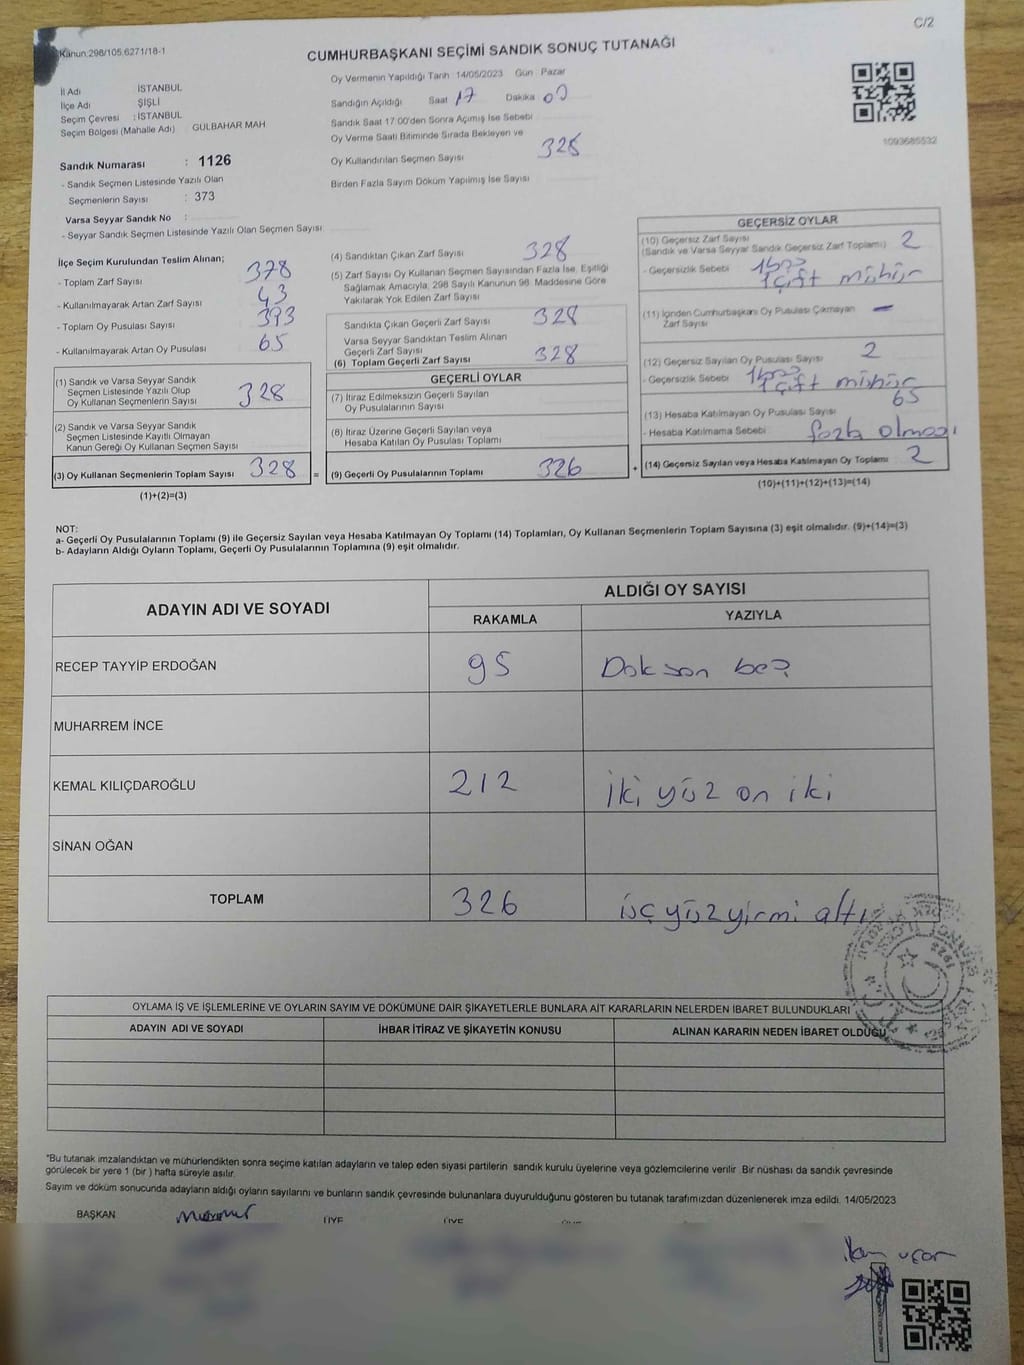 C/2
Kanun:298/105.6271/18-1
CUMHURBAŞKANI SEÇİMİ SANDIK SONUÇ TUTANAĞI
İl Adı İSTANBUL
İlçe Adı ŞİŞLİ
Seçim Çevresi : İSTANBUL
Seçim Bölgesi (Mahalle Adı) GÜLBAHAR MAH
Sandık Numarası : 1126
- Sandık Seçmen Listesinde Yazılı Olan
Seçmenlerin Sayısı : 373
Varsa Seyyar Sandık No :
- Seyyar Sandık Seçmen Listesinde Yazılı Olan Seçmen Sayısı
Oy Vermenin Yapıldığı Tarih 14/05/2023 Gün Pazar
Sandığın Açıldığı Saat 17 Dakika 00
Sandık Saat 17:00'den Sonra Açımış İse Sebebi
Oy Verme Saati Bitiminde Sırada Bekleyen ve
Oy Kullandırılan Seçmen Sayısı 328
Birden Fazla Sayım Döküm Yapılmış İse Sayısı
1093685532
İlçe Seçim Kurulundan Teslim Alınan;
- Toplam Zarf Sayısı 378
- Kullanılmayarak Artan Zarf Sayısı 43
- Toplam Oy Pusulası Sayısı 393
- Kullanılmayarak Artan Oy Pusulası 65
(1) Sandık ve Varsa Seyyar Sandık
Seçmen Listesinde Yazılı Olup
Oy Kullanan Seçmenlerin Sayısı 328
(2) Sandık ve Varsa Seyyar Sandık
Seçmen Listesinde Kayıtlı Olmayan
Kanun Gereği Oy Kullanan Seçmen Sayısı
(3) Oy Kullanan Seçmenlerin Toplam Sayısı 328 =
(1)+(2)=(3)
(4) Sandıktan Çıkan Zarf Sayısı 328
(5) Zarf Sayısı Oy Kullanan Seçmen Sayısından Fazla İse, Eşitliği
Sağlamak Amacıyla; 298 Sayılı Kanunun 98. Maddesine Göre
Yakılarak Yok Edilen Zarf Sayısı
Sandıkta Çıkan Geçerli Zarf Sayısı 328
Varsa Seyyar Sandıktan Teslim Alınan
Geçerli Zarf Sayısı
(6) Toplam Geçerli Zarf Sayısı 328
GEÇERLİ OYLAR
(7) İtiraz Edilmeksizin Geçerli Sayılan
Oy Pusulalarının Sayısı
(8) İtiraz Üzerine Geçerli Sayılan veya
Hesaba Katılan Oy Pusulası Toplamı
(9) Geçerli Oy Pusulalarının Toplamı 326 +
GEÇERSİZ OYLAR
(10) Geçersiz Zarf Sayısı
(Sandık ve Varsa Seyyar Sandık Geçersiz Zarf Toplamı) 2
- Geçersizlik Sebebi 1 çift mühür
(11) İçinden Cumhurbaşkanı Oy Pusulası Çıkmayan –
Zarf Sayısı
(12) Geçersiz Sayılan Oy Pusulası Sayısı 2
- Geçersizlik Sebebi 1 çift mühür
(13) Hesaba Katılmayan Oy Pusulası Sayısı 65
- Hesaba Katılmama Sebebi fazla olması
(14) Geçersiz Sayılan veya Hesaba Katılmayan Oy Toplamı 2
(10)+(11)+(12)+(13)=(14)
NOT:
a- Geçerli Oy Pusulalarının Toplamı (9) ile Geçersiz Sayılan veya Hesaba Katılmayan Oy Toplamı (14) Toplamları, Oy Kullanan Seçmenlerin Toplam Sayısına (3) eşit olmalıdır. (9)+(14)=(3)
b- Adayların Aldığı Oyların Toplamı, Geçerli Oy Pusulalarının Toplamına (9) eşit olmalıdır.
ADAYIN ADI VE SOYADI ALDIĞI OY SAYISI
RAKAMLA YAZIYLA
RECEP TAYYİP ERDOĞAN 95 Doksan beş
MUHARREM İNCE
KEMAL KILIÇDAROĞLU 212 İki yüz on iki
SİNAN OĞAN
TOPLAM 326 üç yüz yirmi altı
OYLAMA İŞ VE İŞLEMLERİNE VE OYLARIN SAYIM VE DÖKÜMÜNE DAİR ŞİKAYETLERLE BUNLARA AİT KARARLARIN NELERDEN İBARET BULUNDUKLARI
ADAYIN ADI VE SOYADI İHBAR İTİRAZ VE ŞİKAYETİN KONUSU ALINAN KARARIN NEDEN İBARET OLDUĞU
*Bu tutanak imzalandıktan ve mühürlendikten sonra seçime katılan adayların ve talep eden siyasi partilerin sandık kurulu üyelerine veya gözlemcilerine verilir. Bir nüshası da sandık çevresinde
görülecek bir yere 1 (bir) hafta süreyle asılır.
Sayım ve döküm sonucunda adayların aldığı oyların sayılarını ve bunların sandık çevresinde bulunanlara duyurulduğunu gösteren bu tutanak tarafımızdan düzenlenerek imza edildi. 14/05/2023
BAŞKAN ÜYE ÜYE